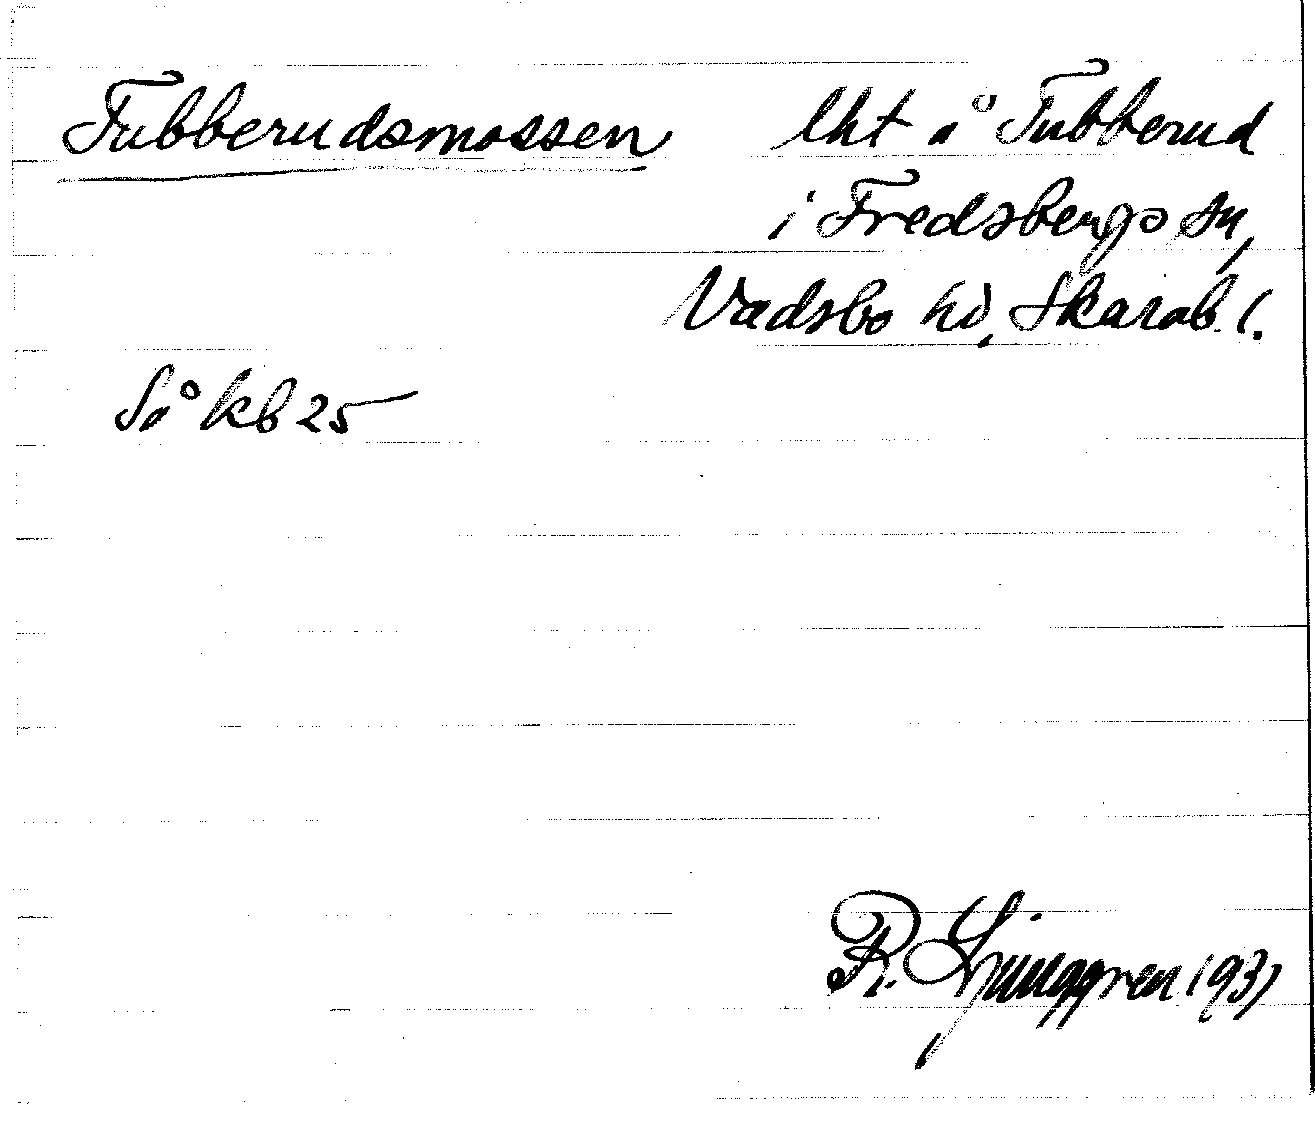 Tubberudsmossen lht å Tubberud
i Fredsbergs sn,
Vadsbo hd, Skarab. l.
Så kb 25
R. Ljunggren 1931